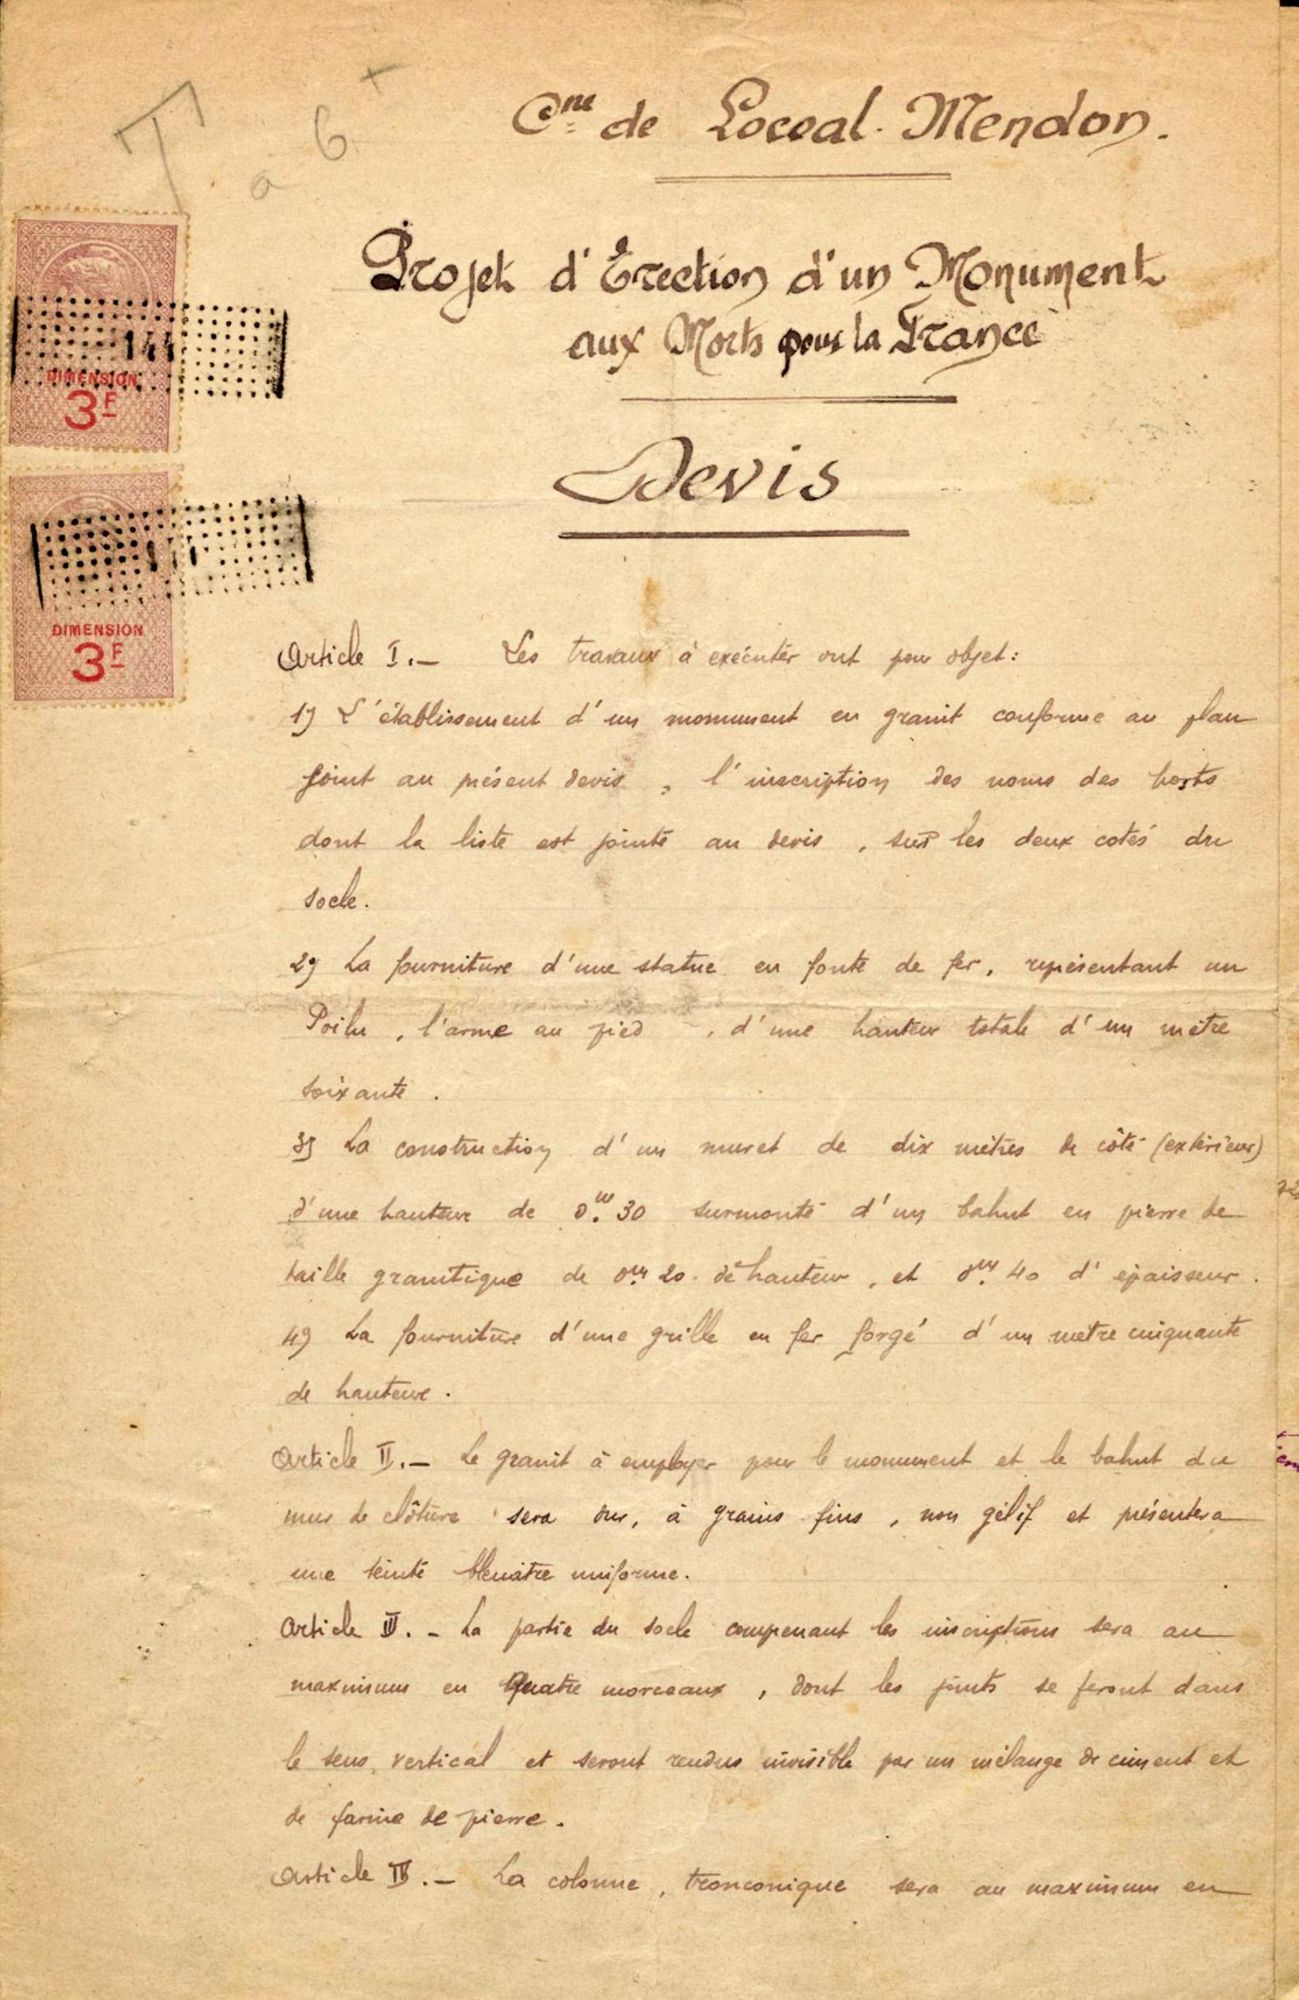 T a 6 +
Cne de Locoal-Mendon.
Projet d'Erection d'un Monument
aux Morts pour la France
Devis
144
DIMENSION
3F
DIMENSION
3F
Article I.— Les travaux à exécuter ont pour objet:
1) L'établissement d'un monument en granit conforme au plan
joint au présent devis, l'inscription des noms des
dont la liste est jointe au devis, sur les deux cotés du
socle.
2) La fourniture d'une statue en fonte de fer, représentant un
Poilu, l'arme au pied, d'une hauteur totale d'un mètre
soixante.
3) La construction d'un muret de dix mètres de côté (extérieur)
d'une hauteur de 0m.30 surmonté d'un bahut en pierre de
taille granitique de 0m 20 de hauteur, et 0m.40 d'épaisseur.
4) La fourniture d'une grille en fer forgé d'un mètre cinquante
de hauteur.
Article II.— Le granit à employer pour le monument et le bahut du
mur de clôture sera dur, à grains fins, non gélif et présentera
une teinte bleuâtre uniforme.
Article III.- La partie du socle comprenant les inscriptions sera au
maximum en quatre morceaux, dont les joints se feront dans
le sens vertical et seront rendus invisible par un mélange de ciment et
de farine de pierre.
Article IV.— La colonne, tronconique sera au maximum en